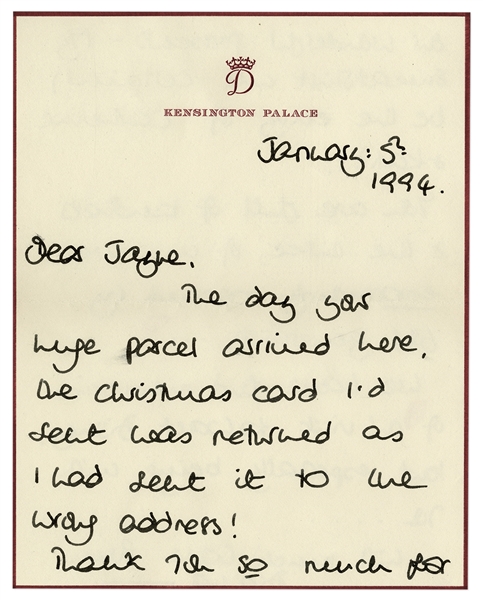 D
KENSINGTON PALACE
January: 5th
1994.
Dear Jayne,
The day your
huge parcel arrived here,
the Christmas card I'd
sent was returned as
I had sent it to the
wrong address!
Thank you so much for